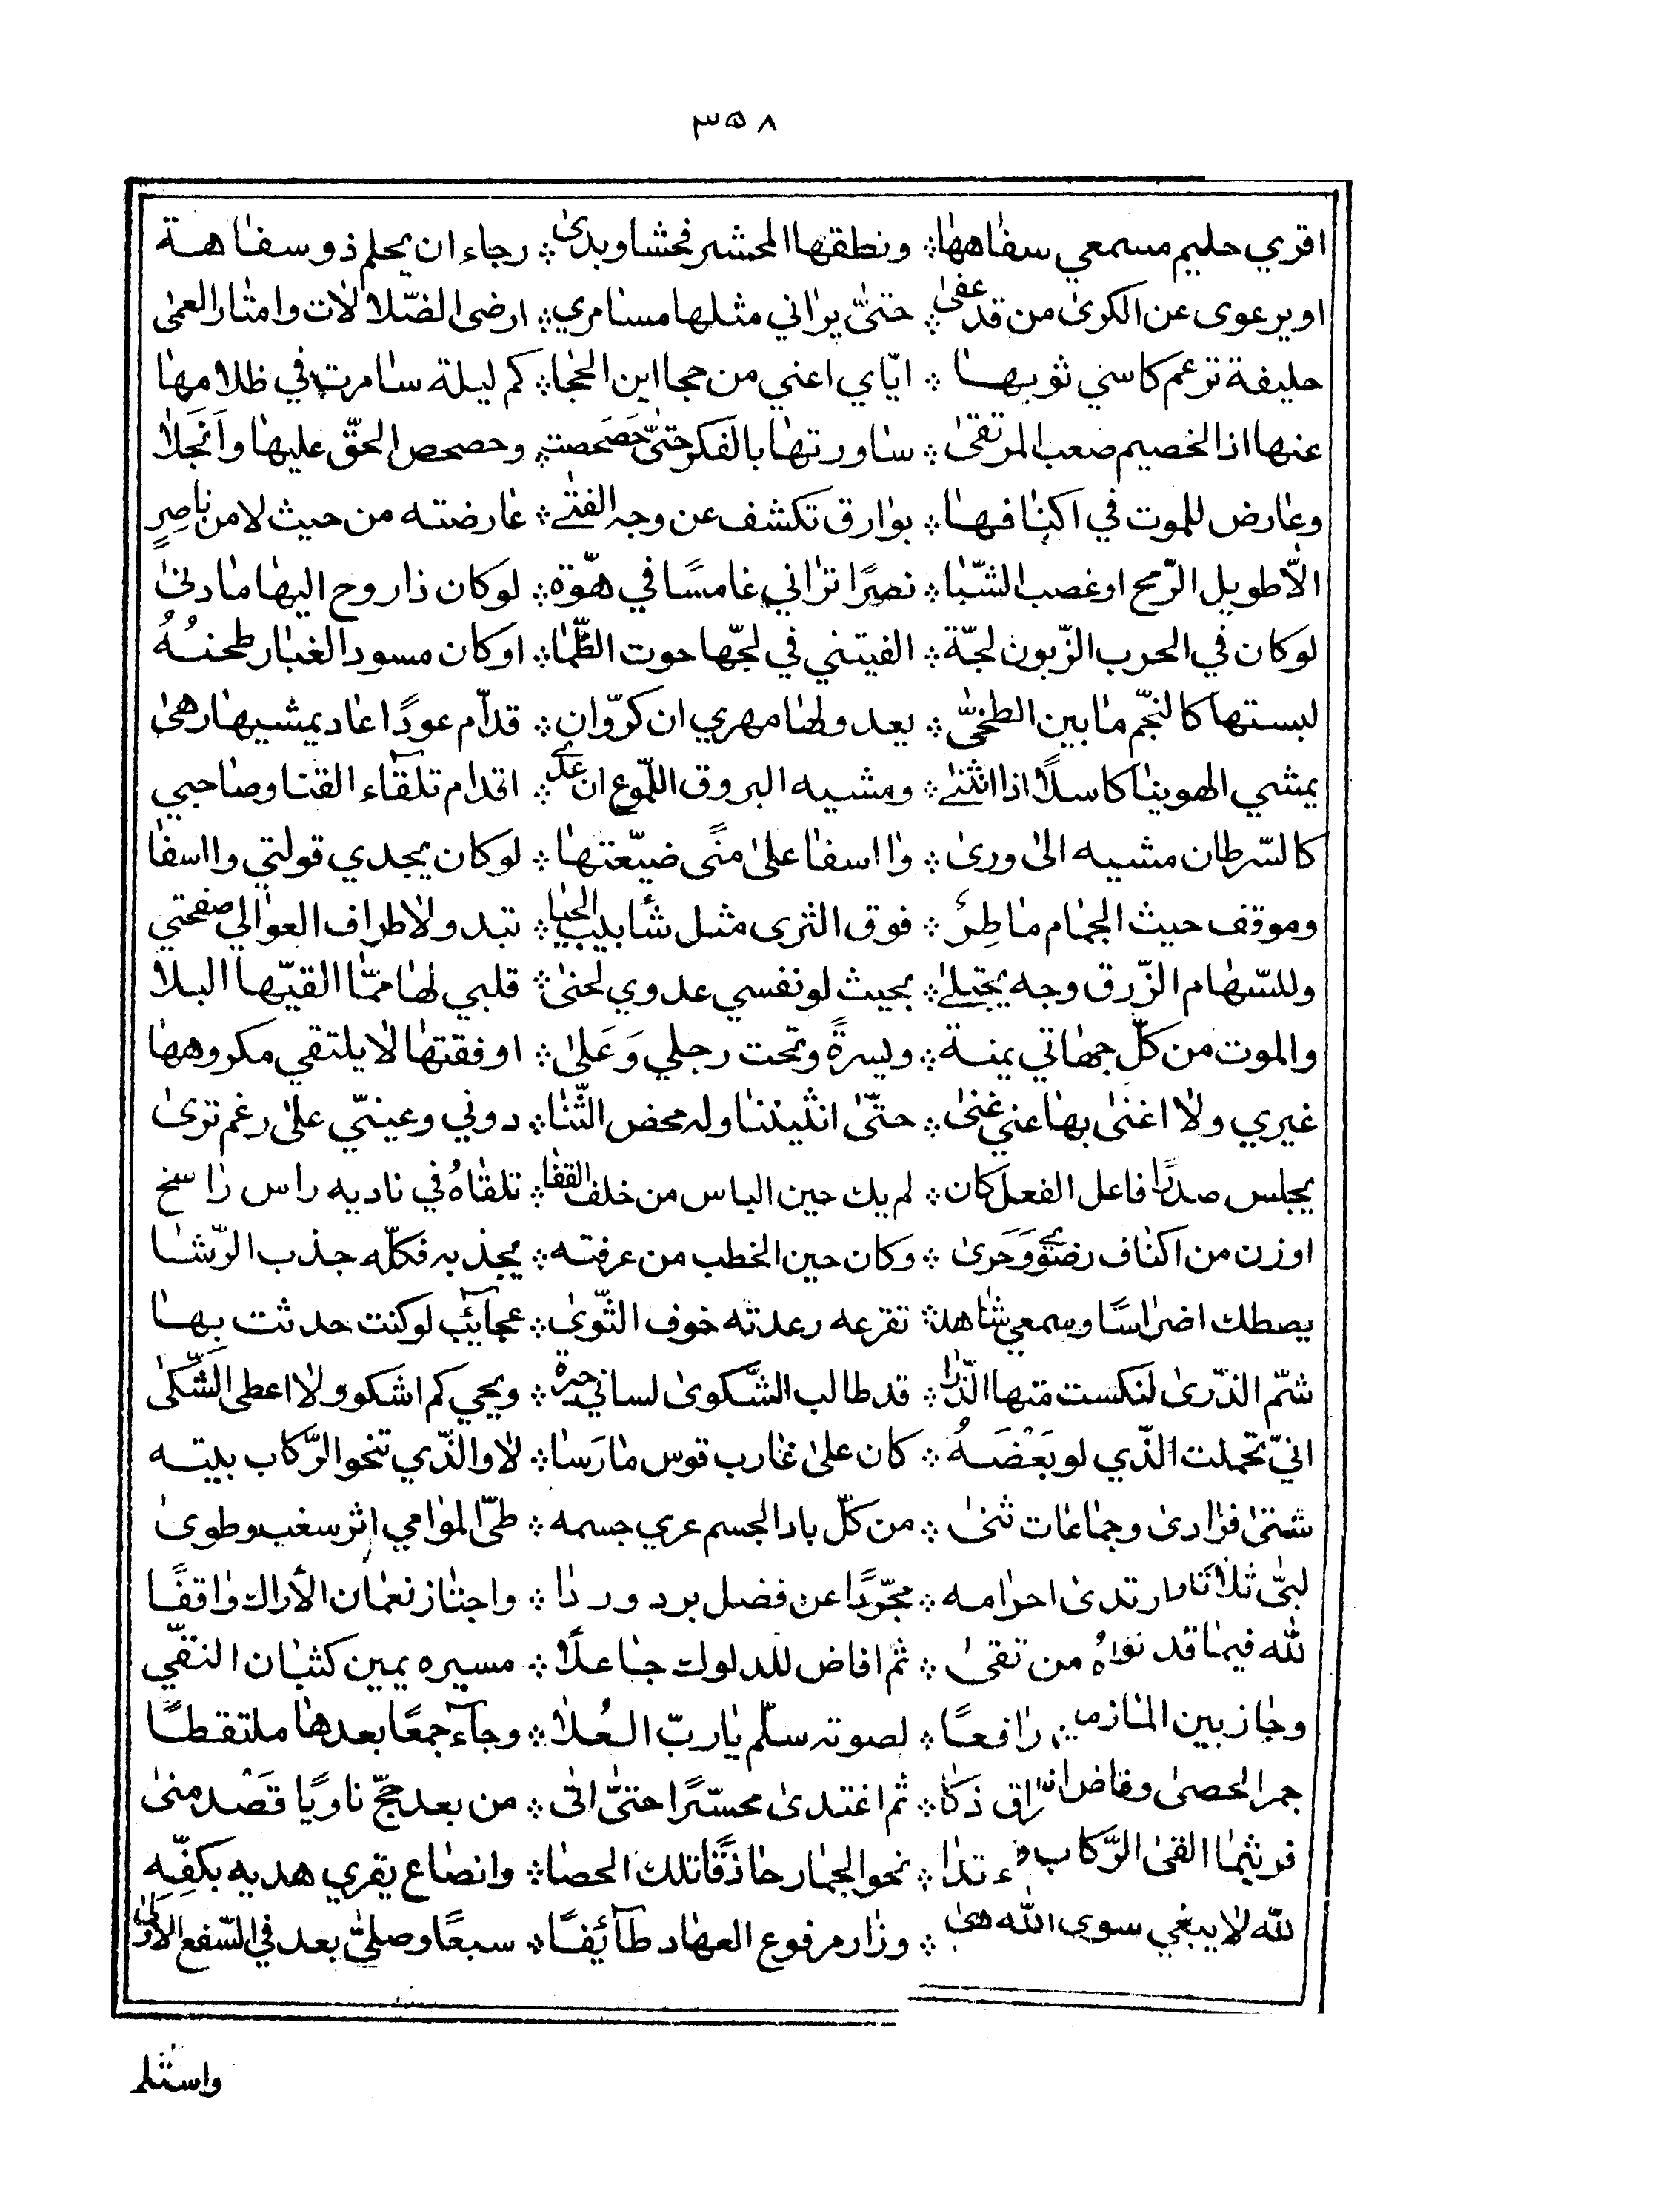 ٣٥٨
اقري حليم مسمعي سفاهها ⁘ ونطقها المحشر فحشا وبدى ⁘ رجاء ان يحلم ذو سفاهة
او يرعوى عن الكرى من قد عفى ⁘ حتىّ يراني مثلها مسامري ⁘ ارضى الضّلالات وامتار العمى
حليفة ترعم كاسني ثوبها ⁘ ايّاي اعني من حجا اين الحجا ⁘ كم ليلة سامرت في ظلامها
عنها اذا الخصيم صعب المرتقى ⁘ ساورتها بالفكر حتىّ حَصَحصت ⁘ وحصحص الحقّ عليها وَانجَلا
وعارض للموت في اكنافها ⁘ بوارق تكشف عن وجه الفتے ⁘ عارضته من حيث لا من ناصِرٍ
الاّ طويل الرّمح او غصب الشّبا ⁘ نصيرًا تراني غامسًا في هوّة ⁘ لو كان ذا روح اليها ما دنى
لو كان في الحرب الزّبون لجّة ⁘ الفيتني في لجّها حوت الظّما ⁘ او كان مسود الغبار طحنهُ
لبستها كالنجّم ما بين الطخىّ ⁘ يعد ولها مهري ان كرّ وان ⁘ قدّام عودًا عاد يمشيها رهى
يمشي الهوينا كاسلًا اذا انثنے ⁘ ومشيه البروق اللّموع ان علے ⁘ اقدام تلقآء القنا وصاحبي
كالسّرطان مشيه الى ورى ⁘ وا اسفا على منًى ضيّعتها ⁘ لو كان يجدي قولتي وا اسفا
وموقف حيث الجمام ماطِرُ ⁘ فوق الثرى مثل شأبيب الحيا ⁘ تبدو لاطراف العوالي صفحتي
وللسّهام الزّرق وجه يجتلے ⁘ بحيث لو نفسي عدوي لحنى ⁘ قلبي لها ممّا القيّها البلا
والموت من كلّ جهاتي يمنة ⁘ ويسرةً وتحت رجلي وَعَلى ⁘ او فقتها لا يلتقي مكروهها
غيري ولا اغنى بها عني غنى ⁘ حتّى انثيننا وله محض الثّنا ⁘ دوني وعينيّ على رغم ترى
يجلس صدرًا فاعل الفعل كان ⁘ لم يك حين الباس من خلف القفا ⁘ تلقاهُ في ناديه راس راسخ
اوزن من اكناف رضوے وَحَرى ⁘ وكان حين الخطب من عرفته ⁘ يجذبه فكلّه جذب الرّشا
يصطك اضراسًا وسمعي شاهد ⁘ تقرعه رعدته خوف الثّوى ⁘ عجآيَب لو كنت حدثت بِها
شمّ الذّرى لنكست متها الذّرا ⁘ قد طالب الشّكوى لساني حيرة ⁘ ويحي كم اشكو ولا اعطى الشّكى
انيّ تحملت الّذي لو بَعْضَهُ ⁘ كان على غارب قوس ما رَسا ⁘ لا والّذي تنحو الرّكاب بيته
شتى فرادى وجماعات ثنى ⁘ من كلّ باد الجسم عري جسمه ⁘ طيّ الموامي إثر سغب وطوى
لبىّ ثلاثًا وارتدى احرامه ⁘ مجرّدًا عن فضل برد وردا ⁘ واجتاز نعمان الأراك واقفًا
لله فيما قد نواهُ من تقى ⁘ ثم افاض للدلوك جاعلًا ⁘ مسيره يمين كثبان النقّي
وجاز بين المنازمين رافعًا ⁘ لصوته سلّم يا ربّ العُلا ⁘ وجآء جمعًا بعدها ملتقطًا
جمر الحصى وفاض اشراق ذكا ⁘ ثم اغتدى محسّرًا حتىّ اتى ⁘ من بعد حجّ ناويًا قَصْد منى
فريثما القى الرّكاب تدا ⁘ نحو الجمار حاذقًا تلك الحصا ⁘ وانصاع يقري هديه بكفّيِه
لله لا يبغي سوى الله هى ⁘ وزار مرفوع العماد طآئفًا ⁘ سبعًا وصلىّ بعد في السّفع الاَولىَ
واستلم